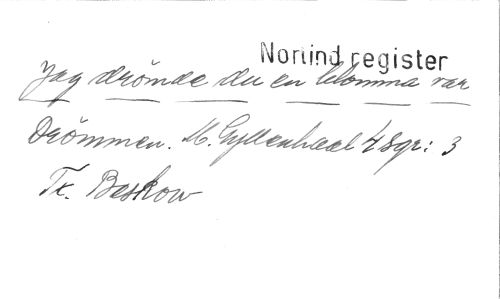 Norlind register
Jag drömde du en blomma var
Drömmen. M. Gyllenhaal 4 Sgr: 3
Tx. Beskow